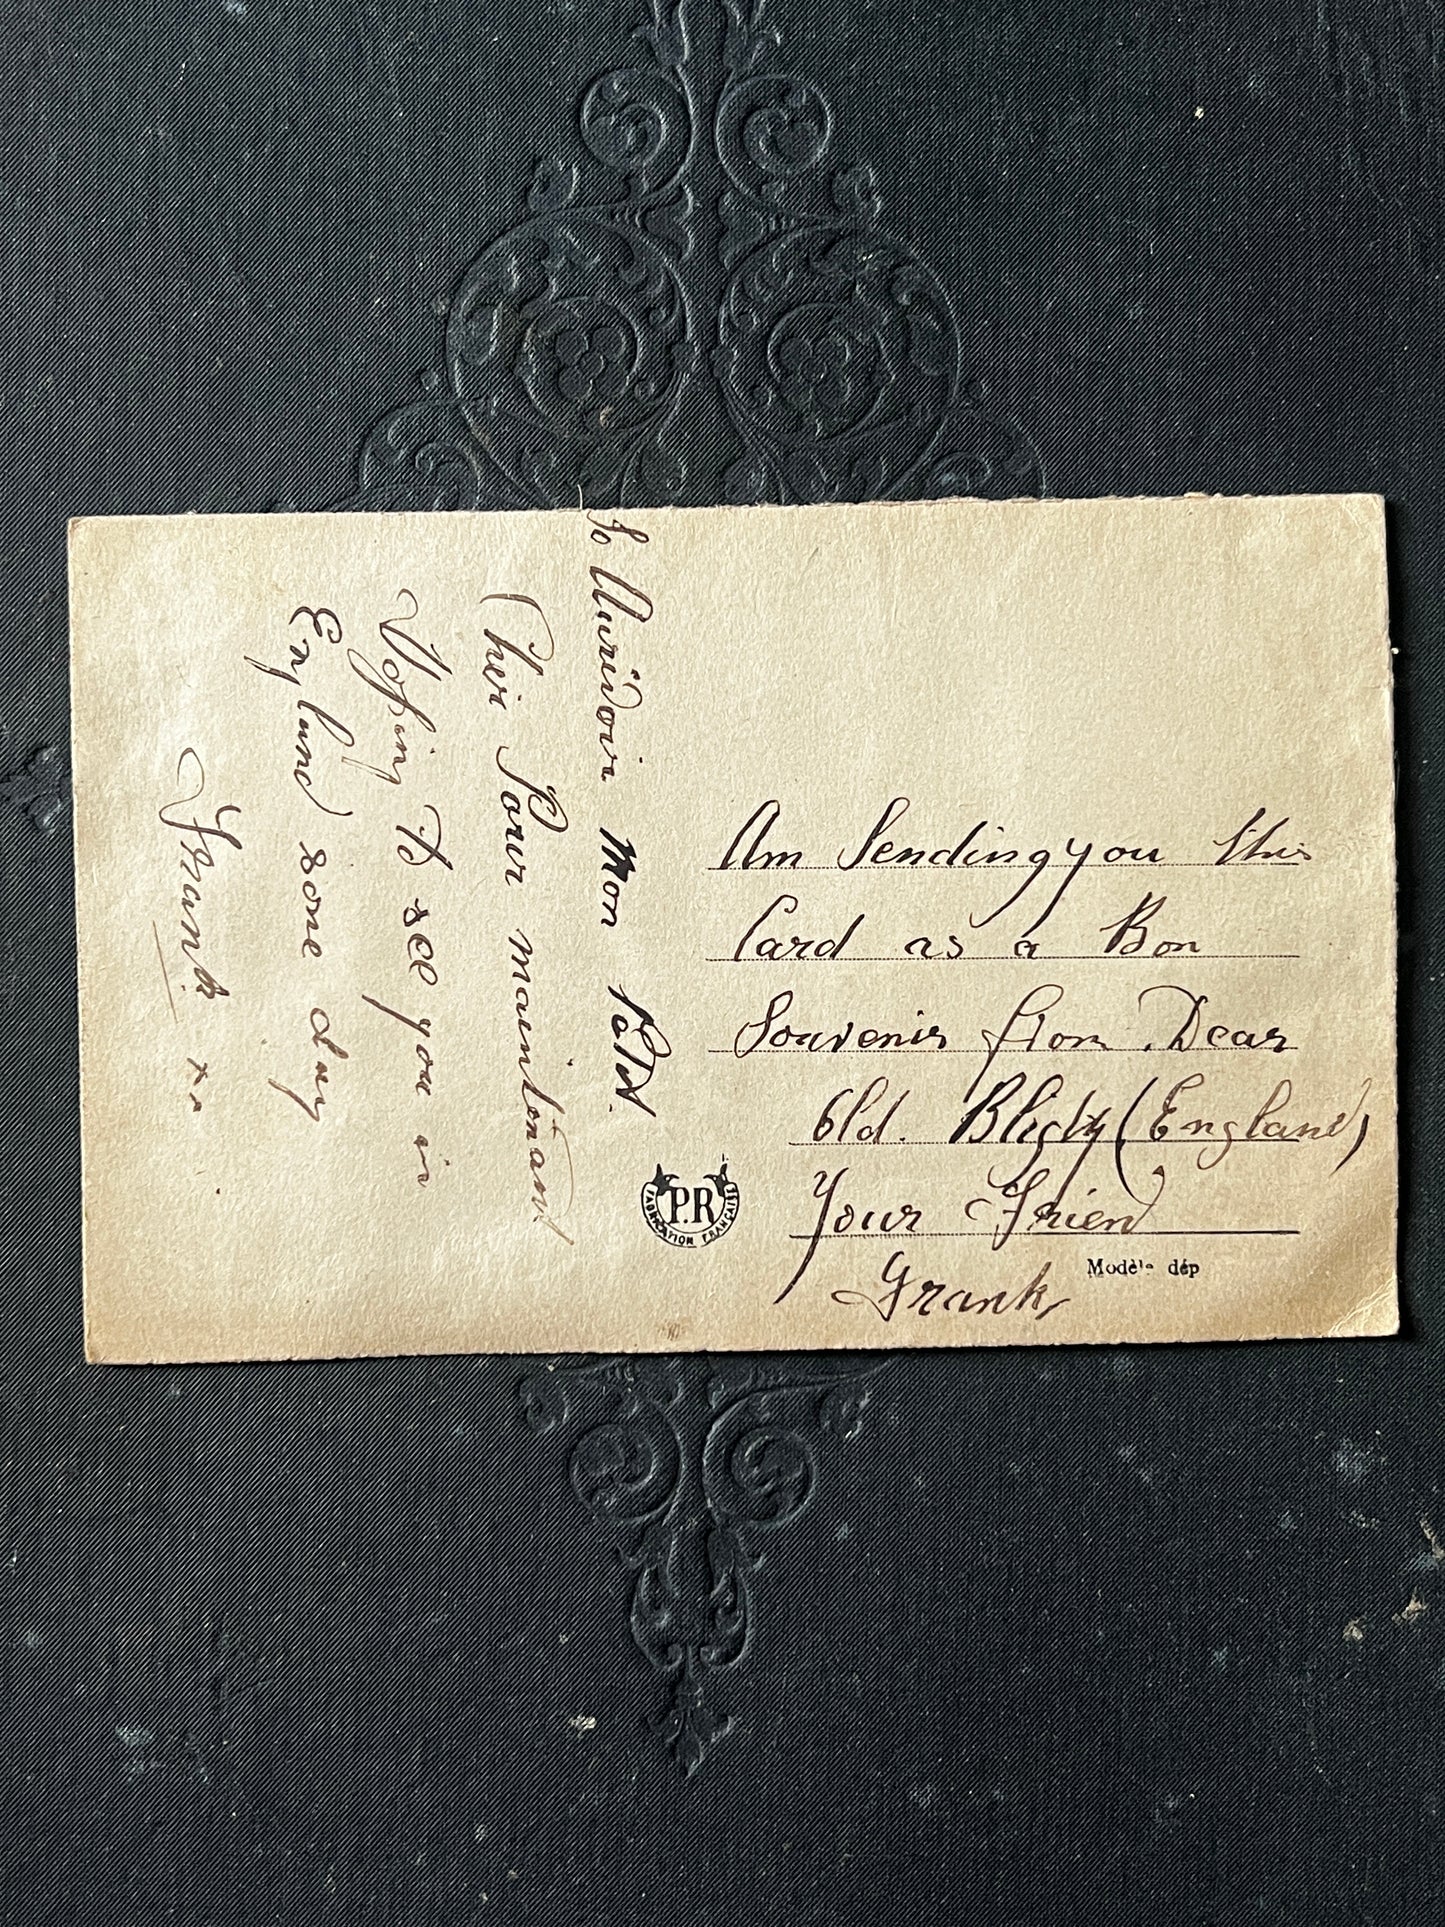 Am Sending you this
Card as a Bon
Souvenir from Dear
Old. Blighty (England)
Your Friend
Frank
So Aurivoir Mon Petit.
Cheri Pour maintenant
Hoping to see you in
England some day
Frank. xx
P.R
FABRICATION FRANÇAISE
Modèle dép